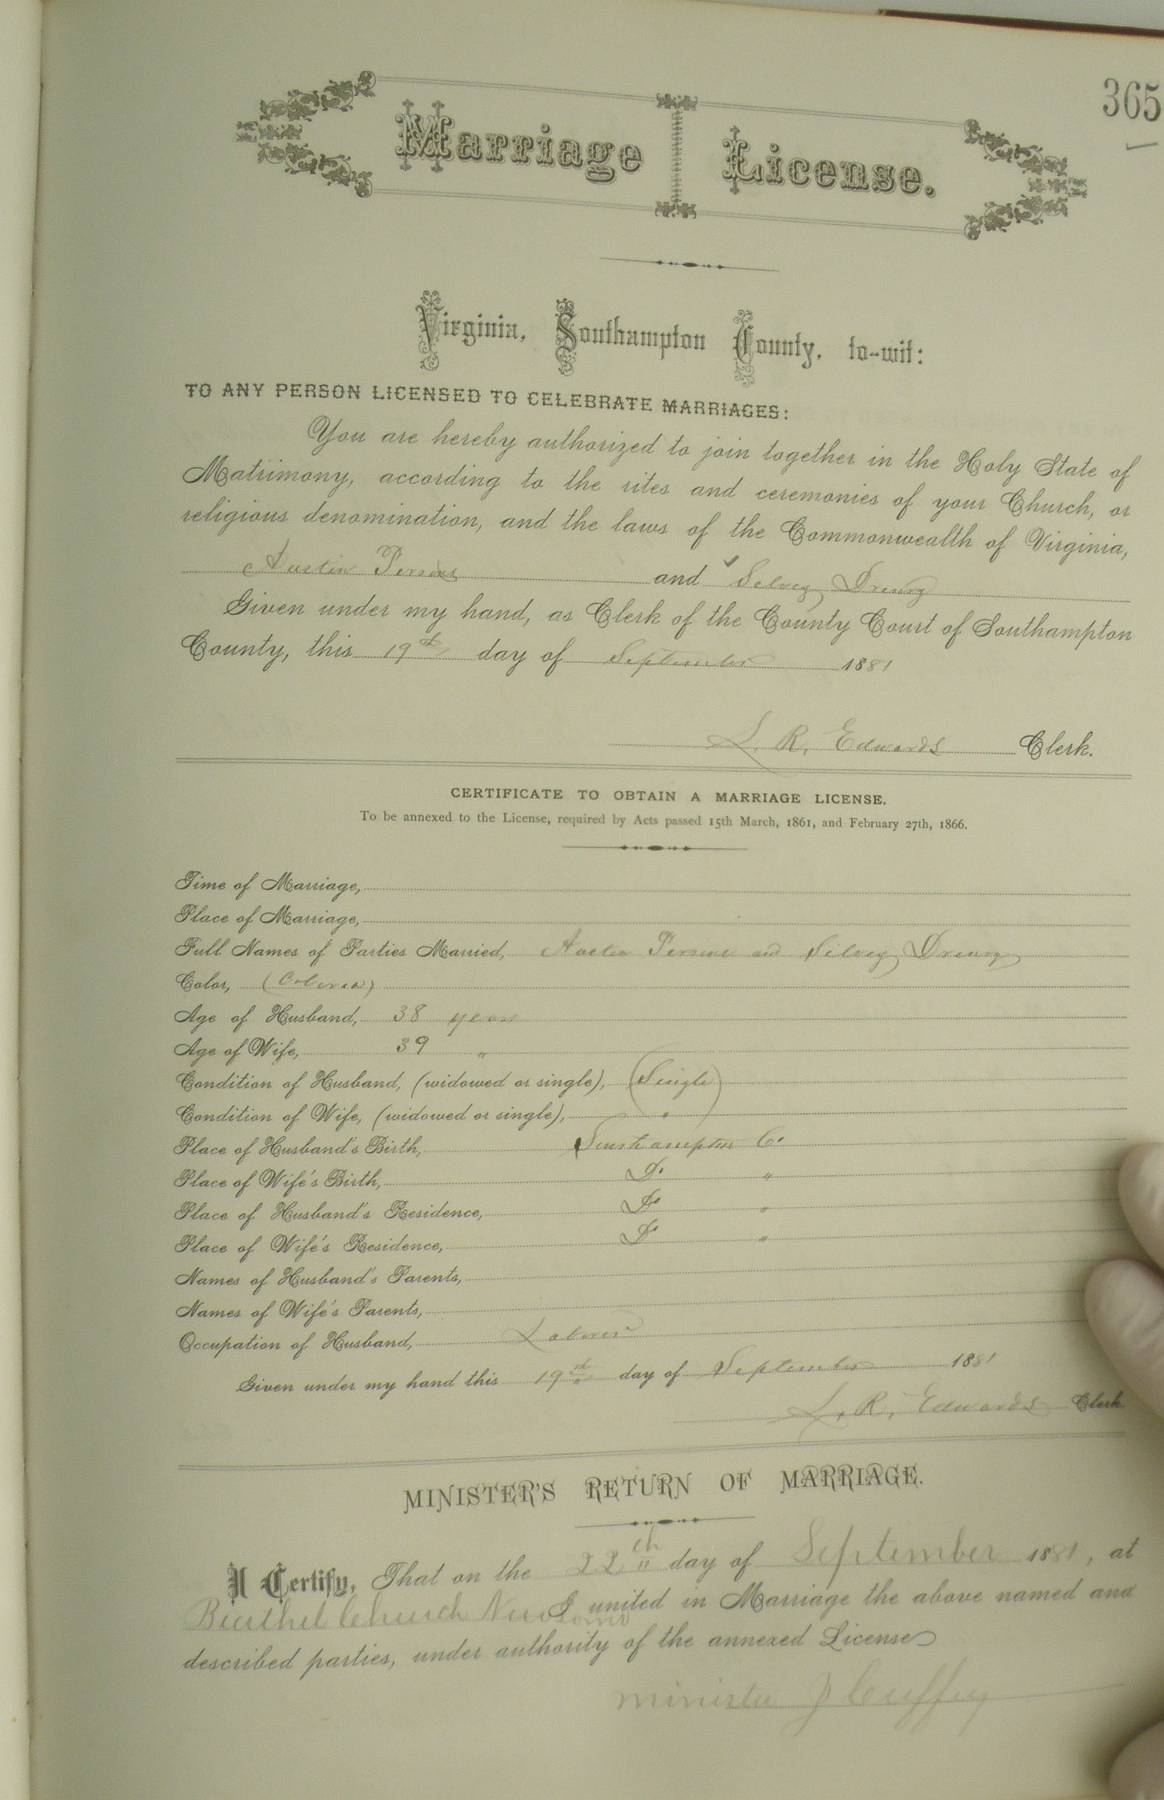 365
Marriage License.
Virginia, Southampton County, to-wit:
TO ANY PERSON LICENSED TO CELEBRATE MARRIAGES:
You are hereby authorized to join together in the Holy State of
Matrimony, according to the rites and ceremonies of your Church, or
religious denomination, and the laws of the Commonwealth of Virginia,
Austin Persons and Silvey Drewry
Given under my hand, as Clerk of the County Court of Southampton
County, this 19th day of September 1881
L. R. Edwards Clerk.
CERTIFICATE TO OBTAIN A MARRIAGE LICENSE.
To be annexed to the License, required by Acts passed 15th March, 1861, and February 27th, 1866.
Time of Marriage,
Place of Marriage,
Full Names of Parties Married, Austin Persons and Silvey Drewry
Color, (Colored)
Age of Husband, 38 years
Age of Wife, 39 "
Condition of Husband, (widowed or single), (Single)
Condition of Wife, (widowed or single), "
Place of Husband's Birth, Southampton Co
Place of Wife's Birth, Do "
Place of Husband's Residence, Do "
Place of Wife's Residence, Do "
Names of Husband's Parents,
Names of Wife's Parents,
Occupation of Husband, Laborer
Given under my hand this 19th day of September 1881
L. R. Edwards Clerk
MINISTER'S RETURN OF MARRIAGE.
I Certify, That on the 22th day of September 1881, at
Bethel Church Newsoms I united in Marriage the above named and
described parties, under authority of the annexed License
minister J Cuffey